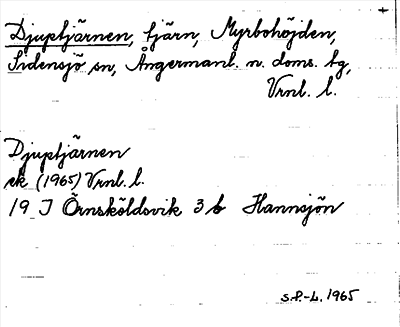 Djuptjärnen, tjärn, Myrbohöjden,
Sidensjö sn, Ångermanl. n. doms. tg,
Vrnl. l.
Djuptjärnen
ek (1965) Vrnl. l.
19 J Örnsköldsvik 3 b Hannsjön
S.P.-L. 1965